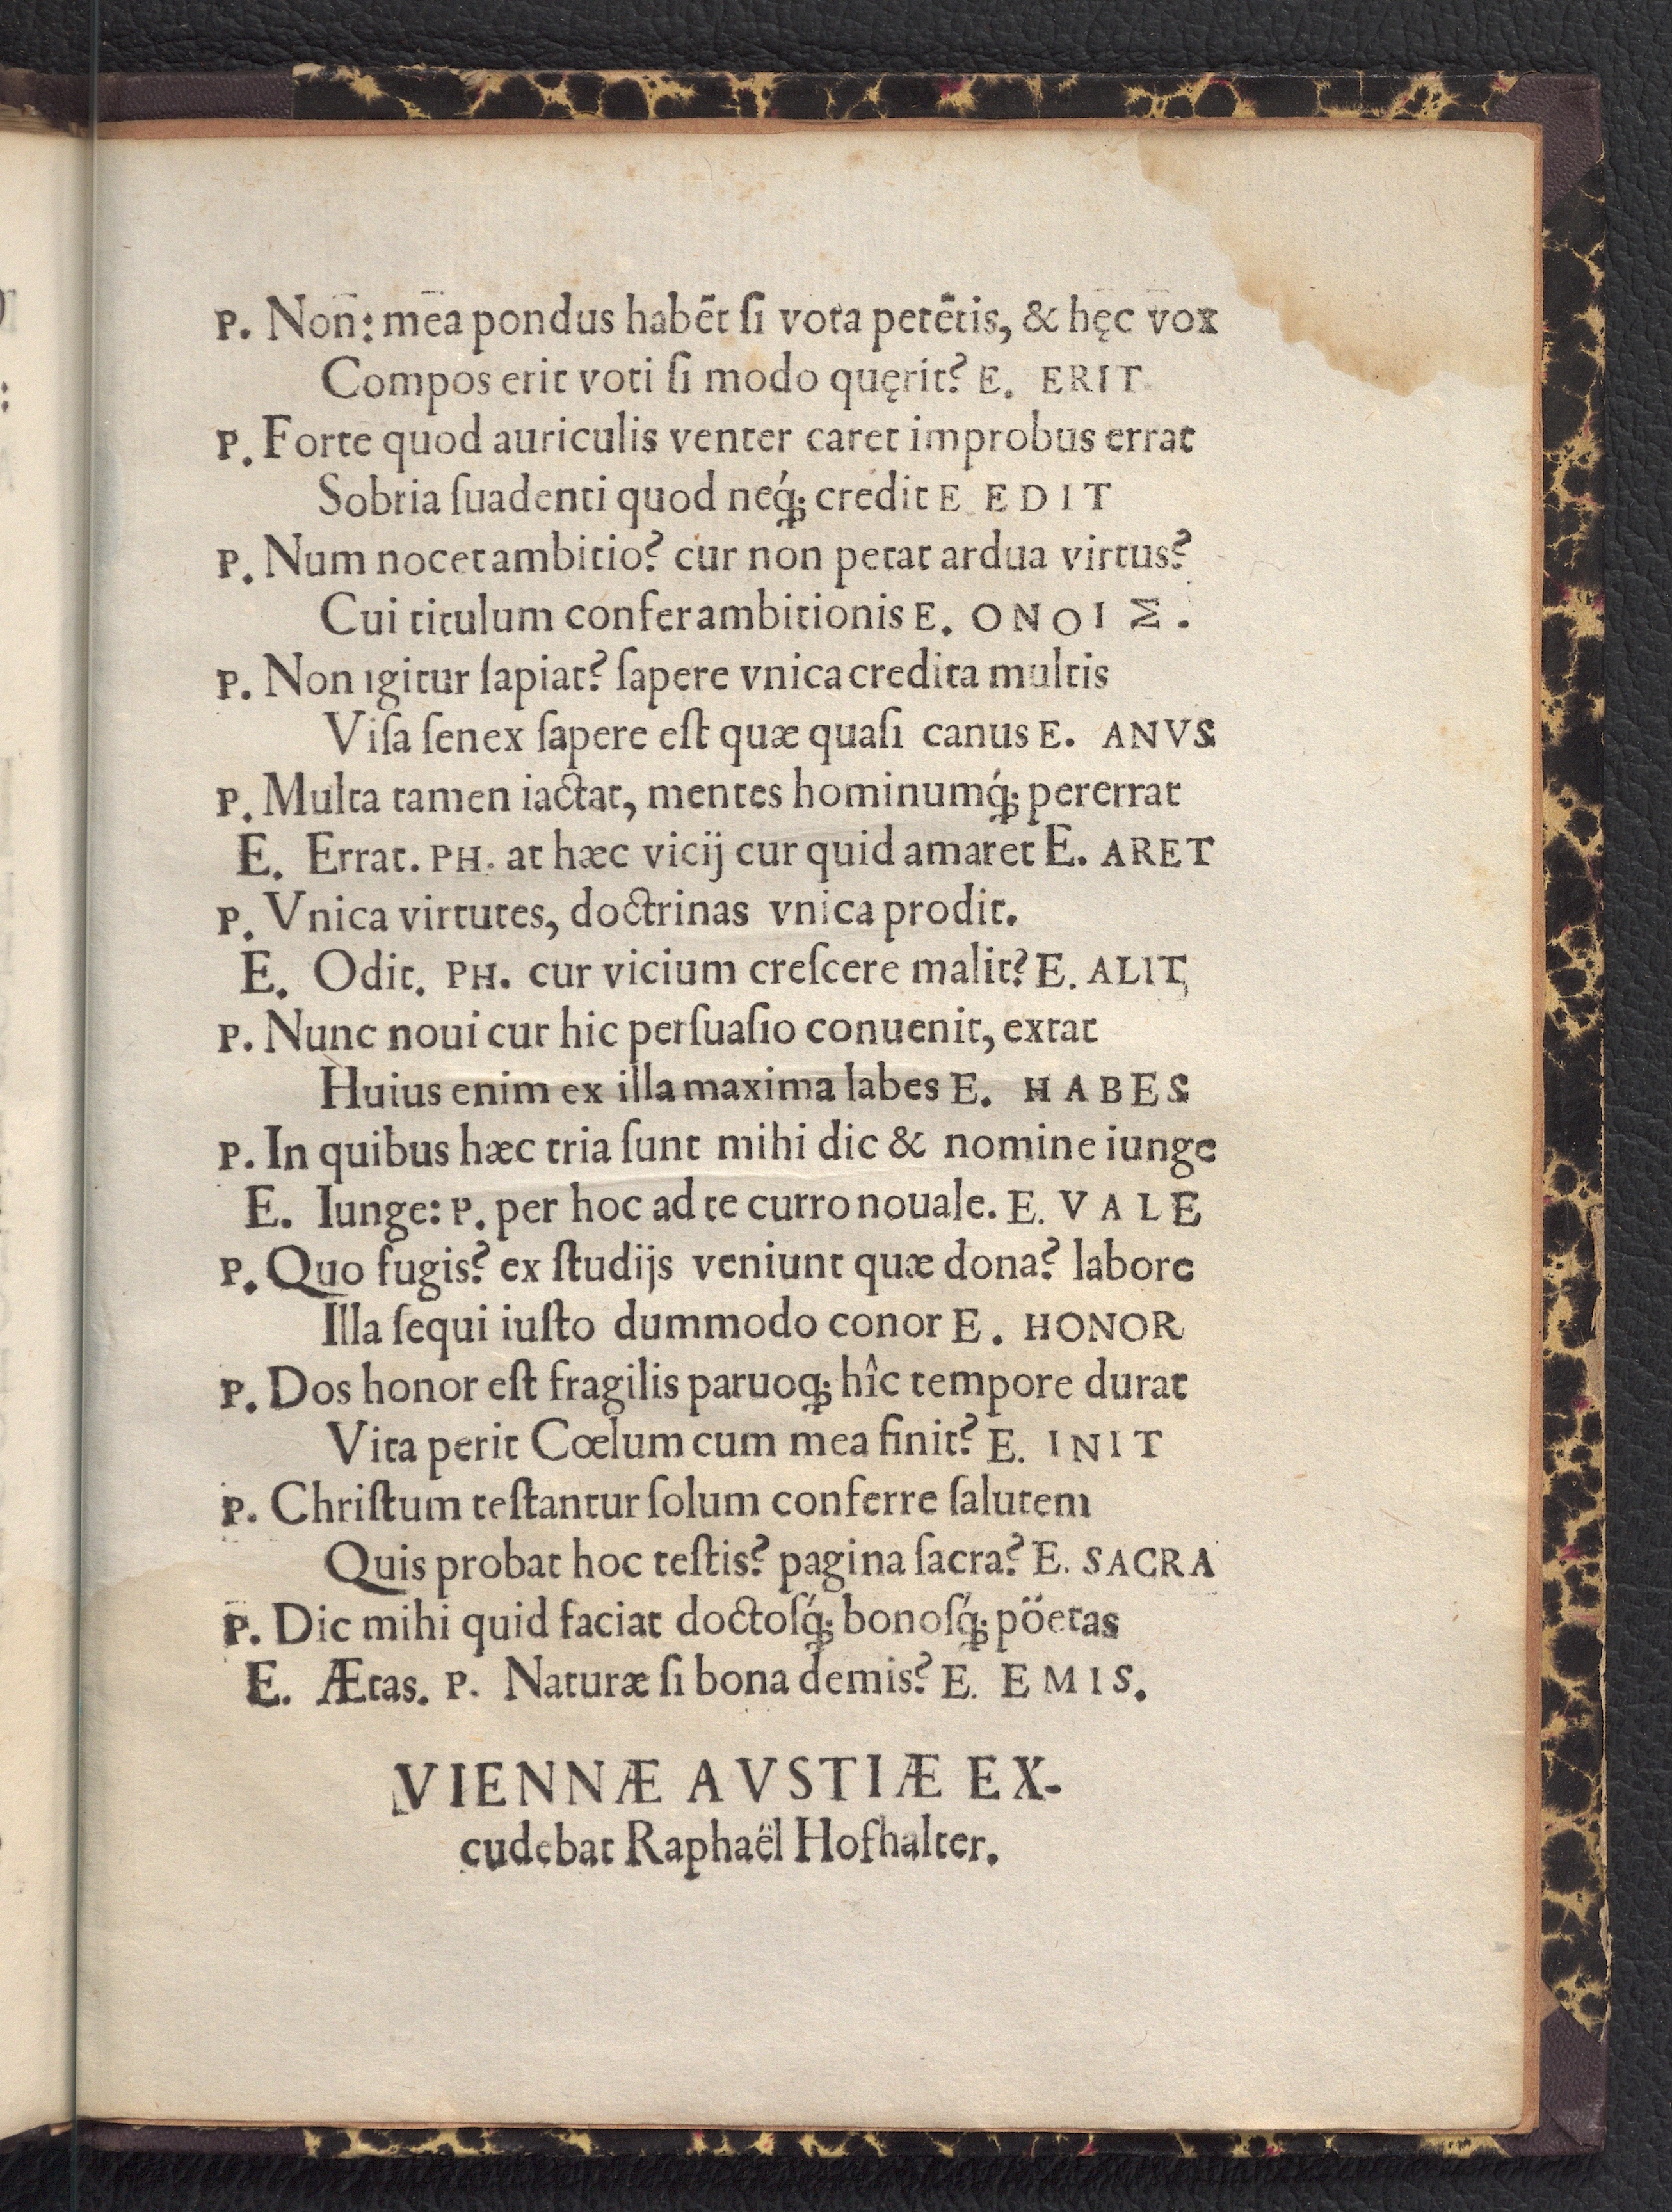 P. Non: mea pondus habēt ſi vota petētis, & hęc vox
Compos erit voti ſi modo quęrit? E. ERIT
P. Forte quod auriculis venter caret improbus errat
Sobria ſuadenti quod neq́; credit E EDIT
P. Num nocet ambitio? cur non petat ardua virtus?
Cui titulum confer ambitionis E. ONOIΣ.
P. Non igitur ſapiat? ſapere vnica credita multis
Viſa ſenex ſapere eſt quæ quaſi canus E. ANVS
P. Multa tamen iactat, mentes hominumq́; pererrat
E. Errat. PH. at hæc vicij cur quid amaret E. ARET
P. Vnica virtutes, doctrinas vnica prodit.
E. Odit. PH. cur vicium creſcere malit? E. ALIT
P. Nunc noui cur hic perſuaſio conuenit, extat
Huius enim ex illa maxima labes E. HABES
P. In quibus hæc tria ſunt mihi dic & nomine iunge
E. Iunge: P. per hoc ad te curro nouale. E. VALE
P. Quo fugis? ex ſtudijs veniunt quæ dona? labore
Illa ſequi iuſto dummodo conor E. HONOR
P. Dos honor eſt fragilis paruoq; hîc tempore durat
Vita perit Cœlum cum mea finit? E. INIT
P. Chriſtum teſtantur ſolum conferre ſalutem
Quis probat hoc teſtis? pagina ſacra? E. SACRA
P. Dic mihi quid faciat doctoſq́; bonoſq́; pöetas
E. Ætas. P. Naturæ ſi bona demis? E. EMIS.
VIENNÆ AVSTIÆ EX-
cudebat Raphaël Hofhalter.